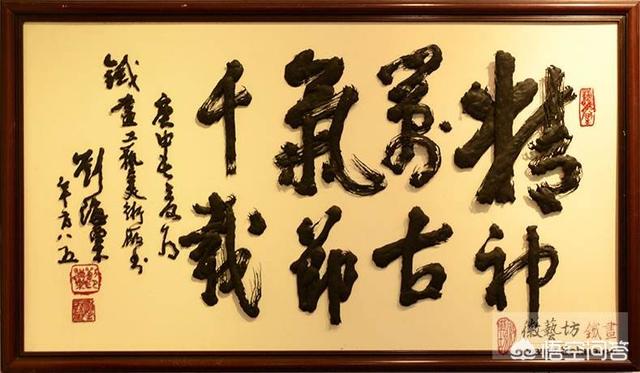 精神
萬古
氣節
千載
庚申
鐵畫工藝美術廠書
劉海粟
年方八五
徽藝坊 鐵畫
悟空问答